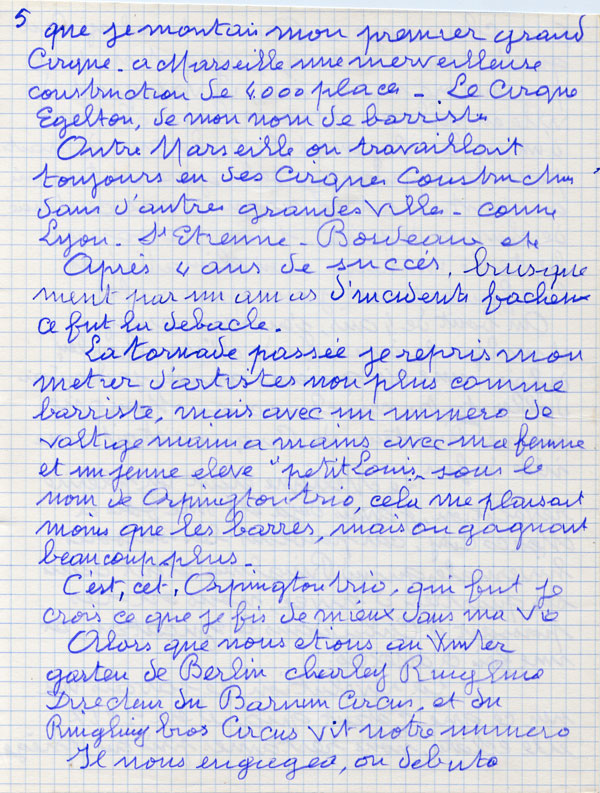 5
que je montais mon premier grand
Cirque - a Marseille une merveilleuse
construction de 4.000 places - Le Cirque
Egelton, de mon nom de barriste
Outre Marseille on travaillait
toujours en des Cirques Construction
dans d'autres grandes villes - comme
Lyon - St Etienne - Bordeaux etc
Après 4 ans de succès, brusque
ment par un amas d'incidents facheux
ce fut la debacle.
La tornade passée je repris mon
metier d'artistes non plus comme
barriste, mais avec un numero de
voltige main a mains avec ma femme
et un jeune eleve "petit Louis" sous le
nom de Orpington trio, cela me plaisait
moins que les barres, mais on gagnait
beaucoup plus -
C'est, cet, Orpington trio, qui fut je
crois ce que je fis de mieux dans ma vie
Alors que nous etions au Vinter
garten de Berlin charley Ringling
Directeur du Barnum Circus, et du
Ringling bros Circus vit notre numero
Il nous engagea, on debuta